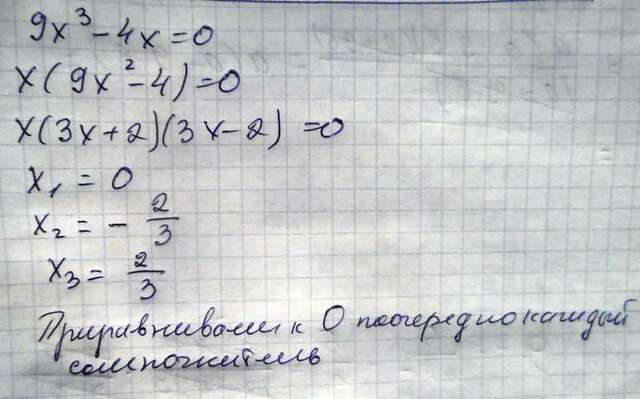 9x³-4x=0
x(9x²-4)=0
x(3x+2)(3x-2)=0
x₁=0
x₂=-2/3
x₃=2/3
Приравниваем к 0 поочередно каждый
сомножитель